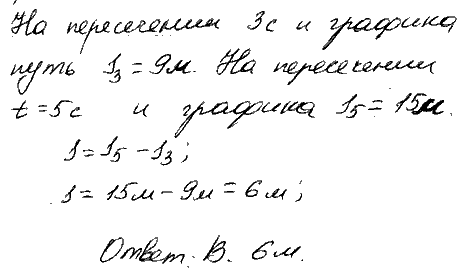 На пересечении 3с и графика
путь s₃ = 9м. На пересечении
t = 5с и графика s₅ = 15м.
s = s₅ – s₃;
s = 15м – 9м = 6м;
Ответ: В. 6м.